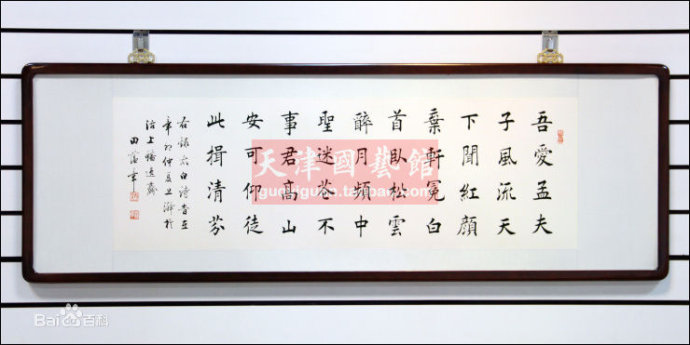 吾愛孟夫
子風流天
下聞紅顏
棄軒冕白
首卧松雲
醉月頻中
聖迷花不
事君高山
安可仰徒
此揖清芬
右錄太白詩
辛卯仲夏上澣於
沽上
田蘊章
天津國藝館
guoyiguan.taobao.com
Bai百科